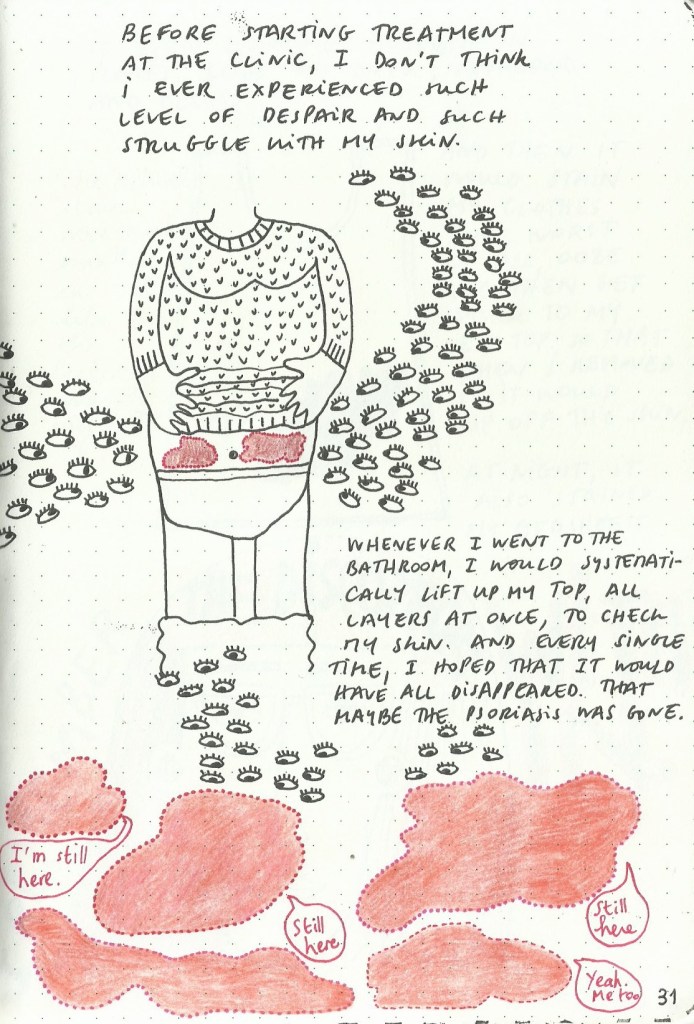 BEFORE STARTING TREATMENT
AT THE CLINIC, I DON'T THINK
I EVER EXPERIENCED SUCH
LEVEL OF DESPAIR AND SUCH
STRUGGLE WITH MY SKIN.
WHENEVER I WENT TO THE
BATHROOM, I WOULD SYSTEMATI-
CALLY LIFT UP MY TOP, ALL
LAYERS AT ONCE, TO CHECK
MY SKIN. AND EVERY SINGLE
TIME, I HOPED THAT IT WOULD
HAVE ALL DISAPPEARED. THAT
MAYBE THE PSORIASIS WAS GONE.
I'm still
here.
Still
here
Still
here
Yeah.
Me too
31